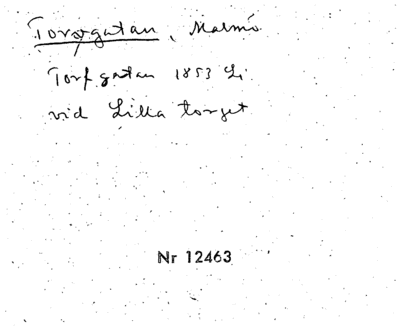 Torggatan, Malmö
Torfgatan 1853 Li
vid Lilla torget
Nr 12463